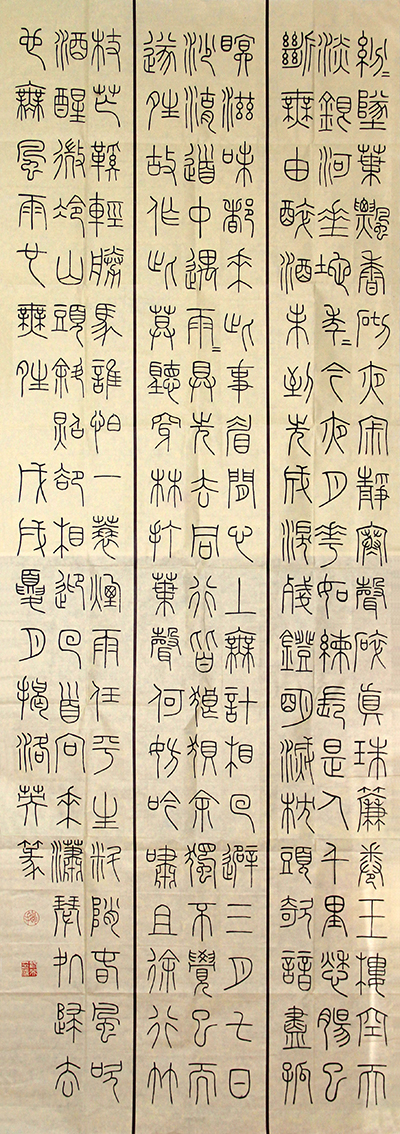 紛々墜葉飄香砌夜寂靜寒聲碎真珠簾卷玉樓空天
淡銀河垂地年々今夜月華如練長是人千里愁腸已
斷無由醉酒未到先成淚殘燈明滅枕頭欹諳盡孤
眠滋味都來此事眉間心上無計相回避三月七日
沙湖道中遇雨々具先去同行皆狼狽余獨不覺已而
遂晴故作此莫聽穿林打葉聲何妨吟嘯且徐行竹
杖芒鞵輕勝馬誰怕一蓑煙雨任平生料峭春風吹
酒醒微冷山頭斜照卻相迎回首向來瀟瑟処歸去
也無風雨也無晴 戊戌夏月楊洛英篆